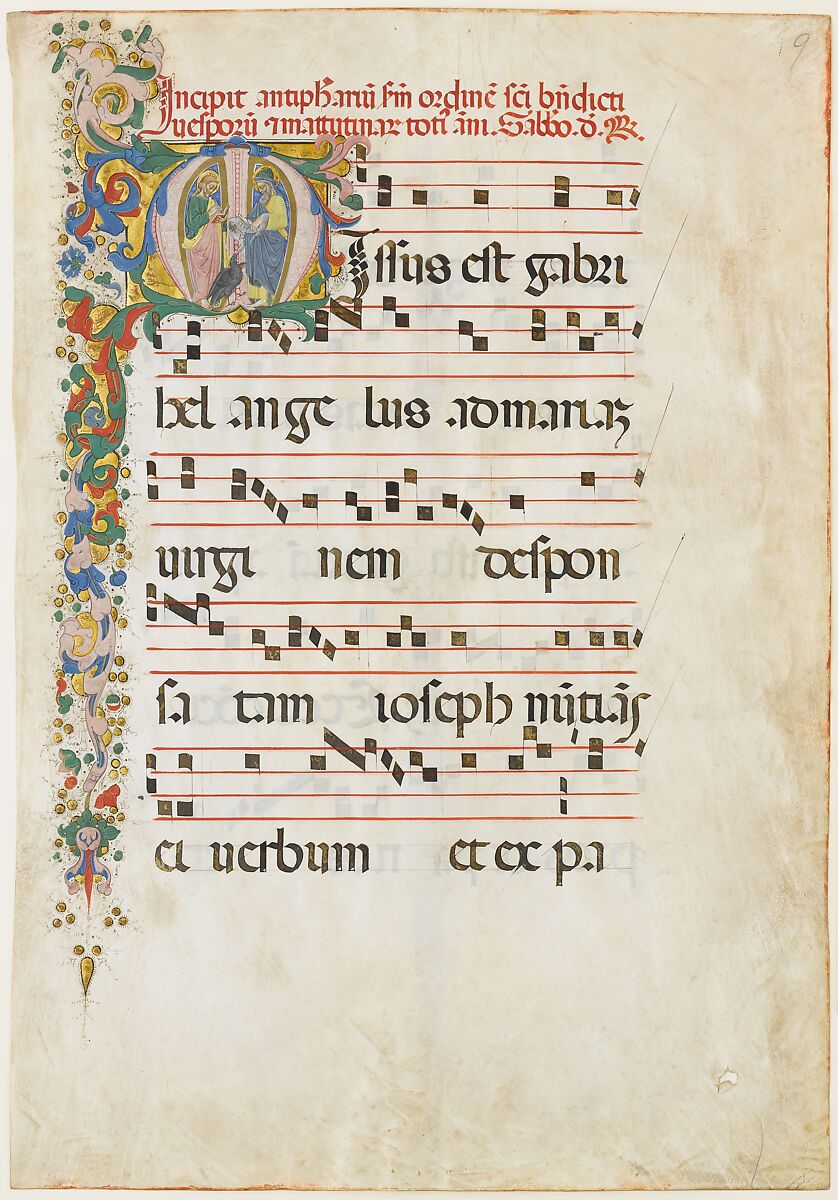 9
Incipit antiphariū scd̄m ordinē sc̄i bn̄dicti
uesporū ⁊ matutinar toti ān̄i. Sabb̄o. d̄. R.
Missus est gabri
hel ange lus ad mariaz
uirgi nem despon
sa tam ioseph nūtiās
ei uerbum et ex pa